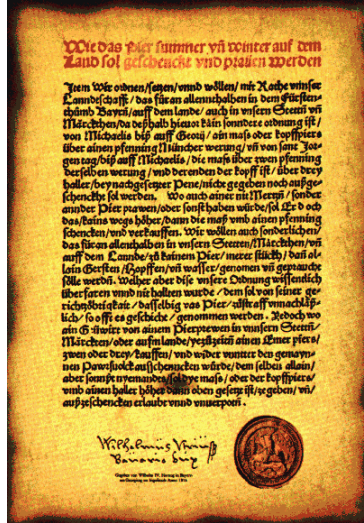 Wie das Pier summer vñ winter auf dem
Land sol geschenckt vnd prauen werden
Item Wir ordnen/setzen/vnnd wöllen/mit Rathe vnnser
Lanndtschafft/das für an allennthalben in dem Fürsten-
thumb Bayrn/auff dem lande/auch in vnsern Stettñ vñ
Märckthen/da deßhalb hieuor kain sonndere ordnung ist/
von Michaelis biß auff Georij/ain mass oder kopffpiers
über ainen pfenning Müncher werung/vñ von sant Jor-
gen tag/biß auff Michaelis/die mass über zwen pfenning
derselben werung/vnd derenden der kopff ist/über drey
haller/bey nachgesetzter Pene/nicht gegeben noch außge-
schenckht sol werden. Wo auch ainer nit Mertzñ/sonder
annder Pier prawen/oder sonst haben würde/sol Er doch
das/kains wegs höher/dann die maß vmb ainen pfenning
schencken/vnd verkauffen. Wir wöllen auch sonderlichen/
das für an allenthalben in vnsern Stetten/Märckthen/vñ
auff dem Lannde/zů kainem Pier/merer stückh/dañ al-
lain Gersten/Hopffen/vñ wasser/genomen vñ gepraucht
sölle werdñ. Welher aber dise vnsere Ordnung wissentlich
überfaren vnnd nit hallten wurde/dem sol von seiner ge-
richtzöbrigkait/dasselbig vas Pier/zůstraff vnnachläß-
lich/so offt es geschicht/genommen werden. Jedoch wo
ain Gůwirt von ainem Pierprewen in vnnsern Stettñ
Märckten/oder aufm lande/yezůzeitñ ainen Emer piers/
zwen oder drey/kauffen/vnd wider vnntter den gemayn-
nen Pawrsuolck ausschencken würde/dem selben allain/
aber sonnst nyemandts/sol dye mass/oder der kopffpiers/
vmb ainen haller höher dann oben gesetzt ist/ze geben/vñ/
außzeschencken erlaubt vnnd vnuerpotñ.
Gegeben von Wilhelm IV. Herzog in Bayern